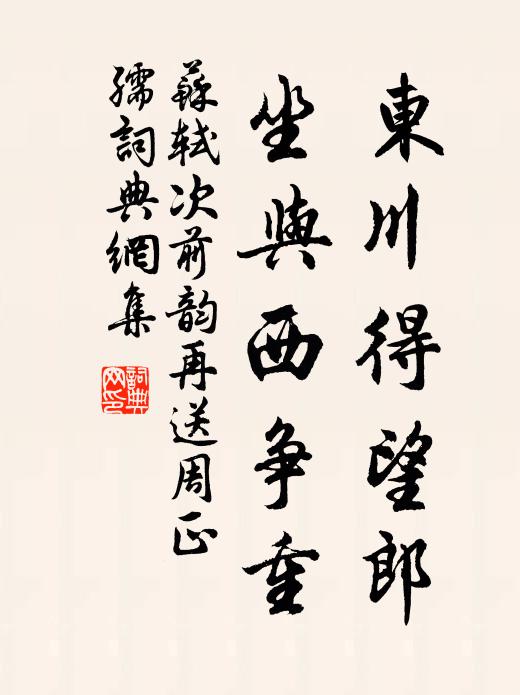 東川得望郎
坐與西爭重
蘇軾次前韵再送周正
孺詞典網集
詞典網印